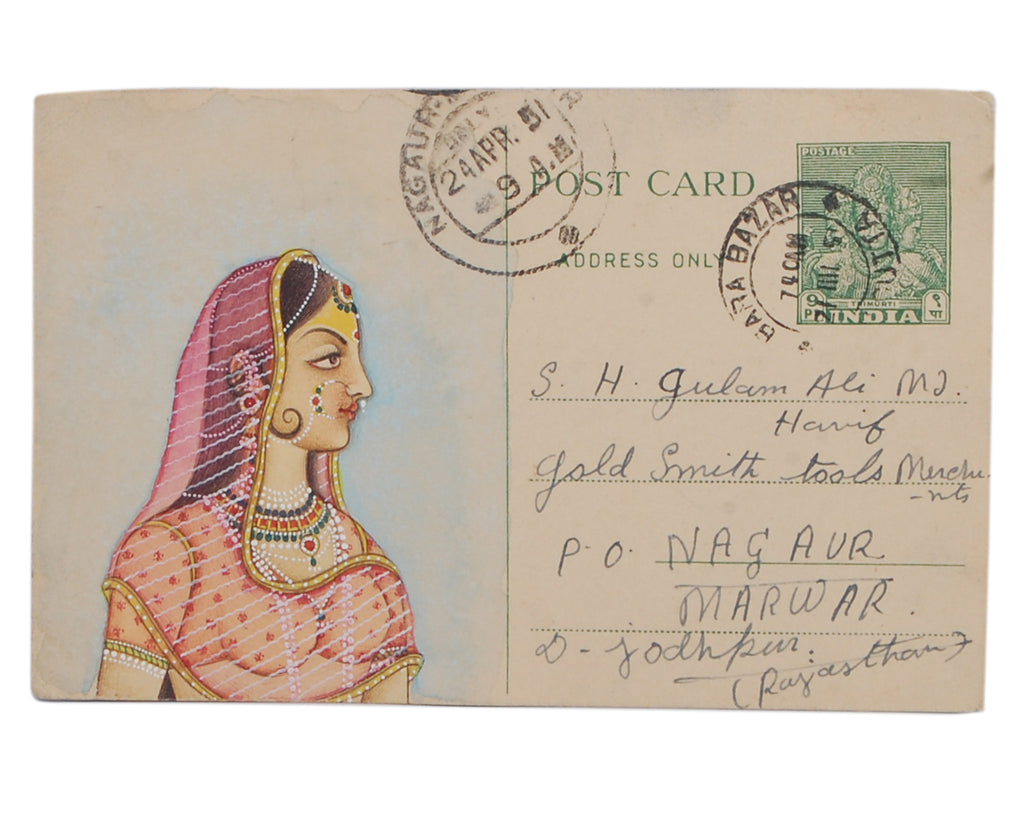 NAGAUR
ONLY
24 APR. 51
9 A.M
POST CARD
ADDRESS ONLY
POSTAGE
TRIMURTI
9 P INDIA ९ पा
BARA BAZAR
S. H. Gulam Ali MD.
Hanif
Gold Smith tools Mercha
-nts
P.O. NAGAUR
MARWAR.
D - Jodhpur.
(Rajasthan)